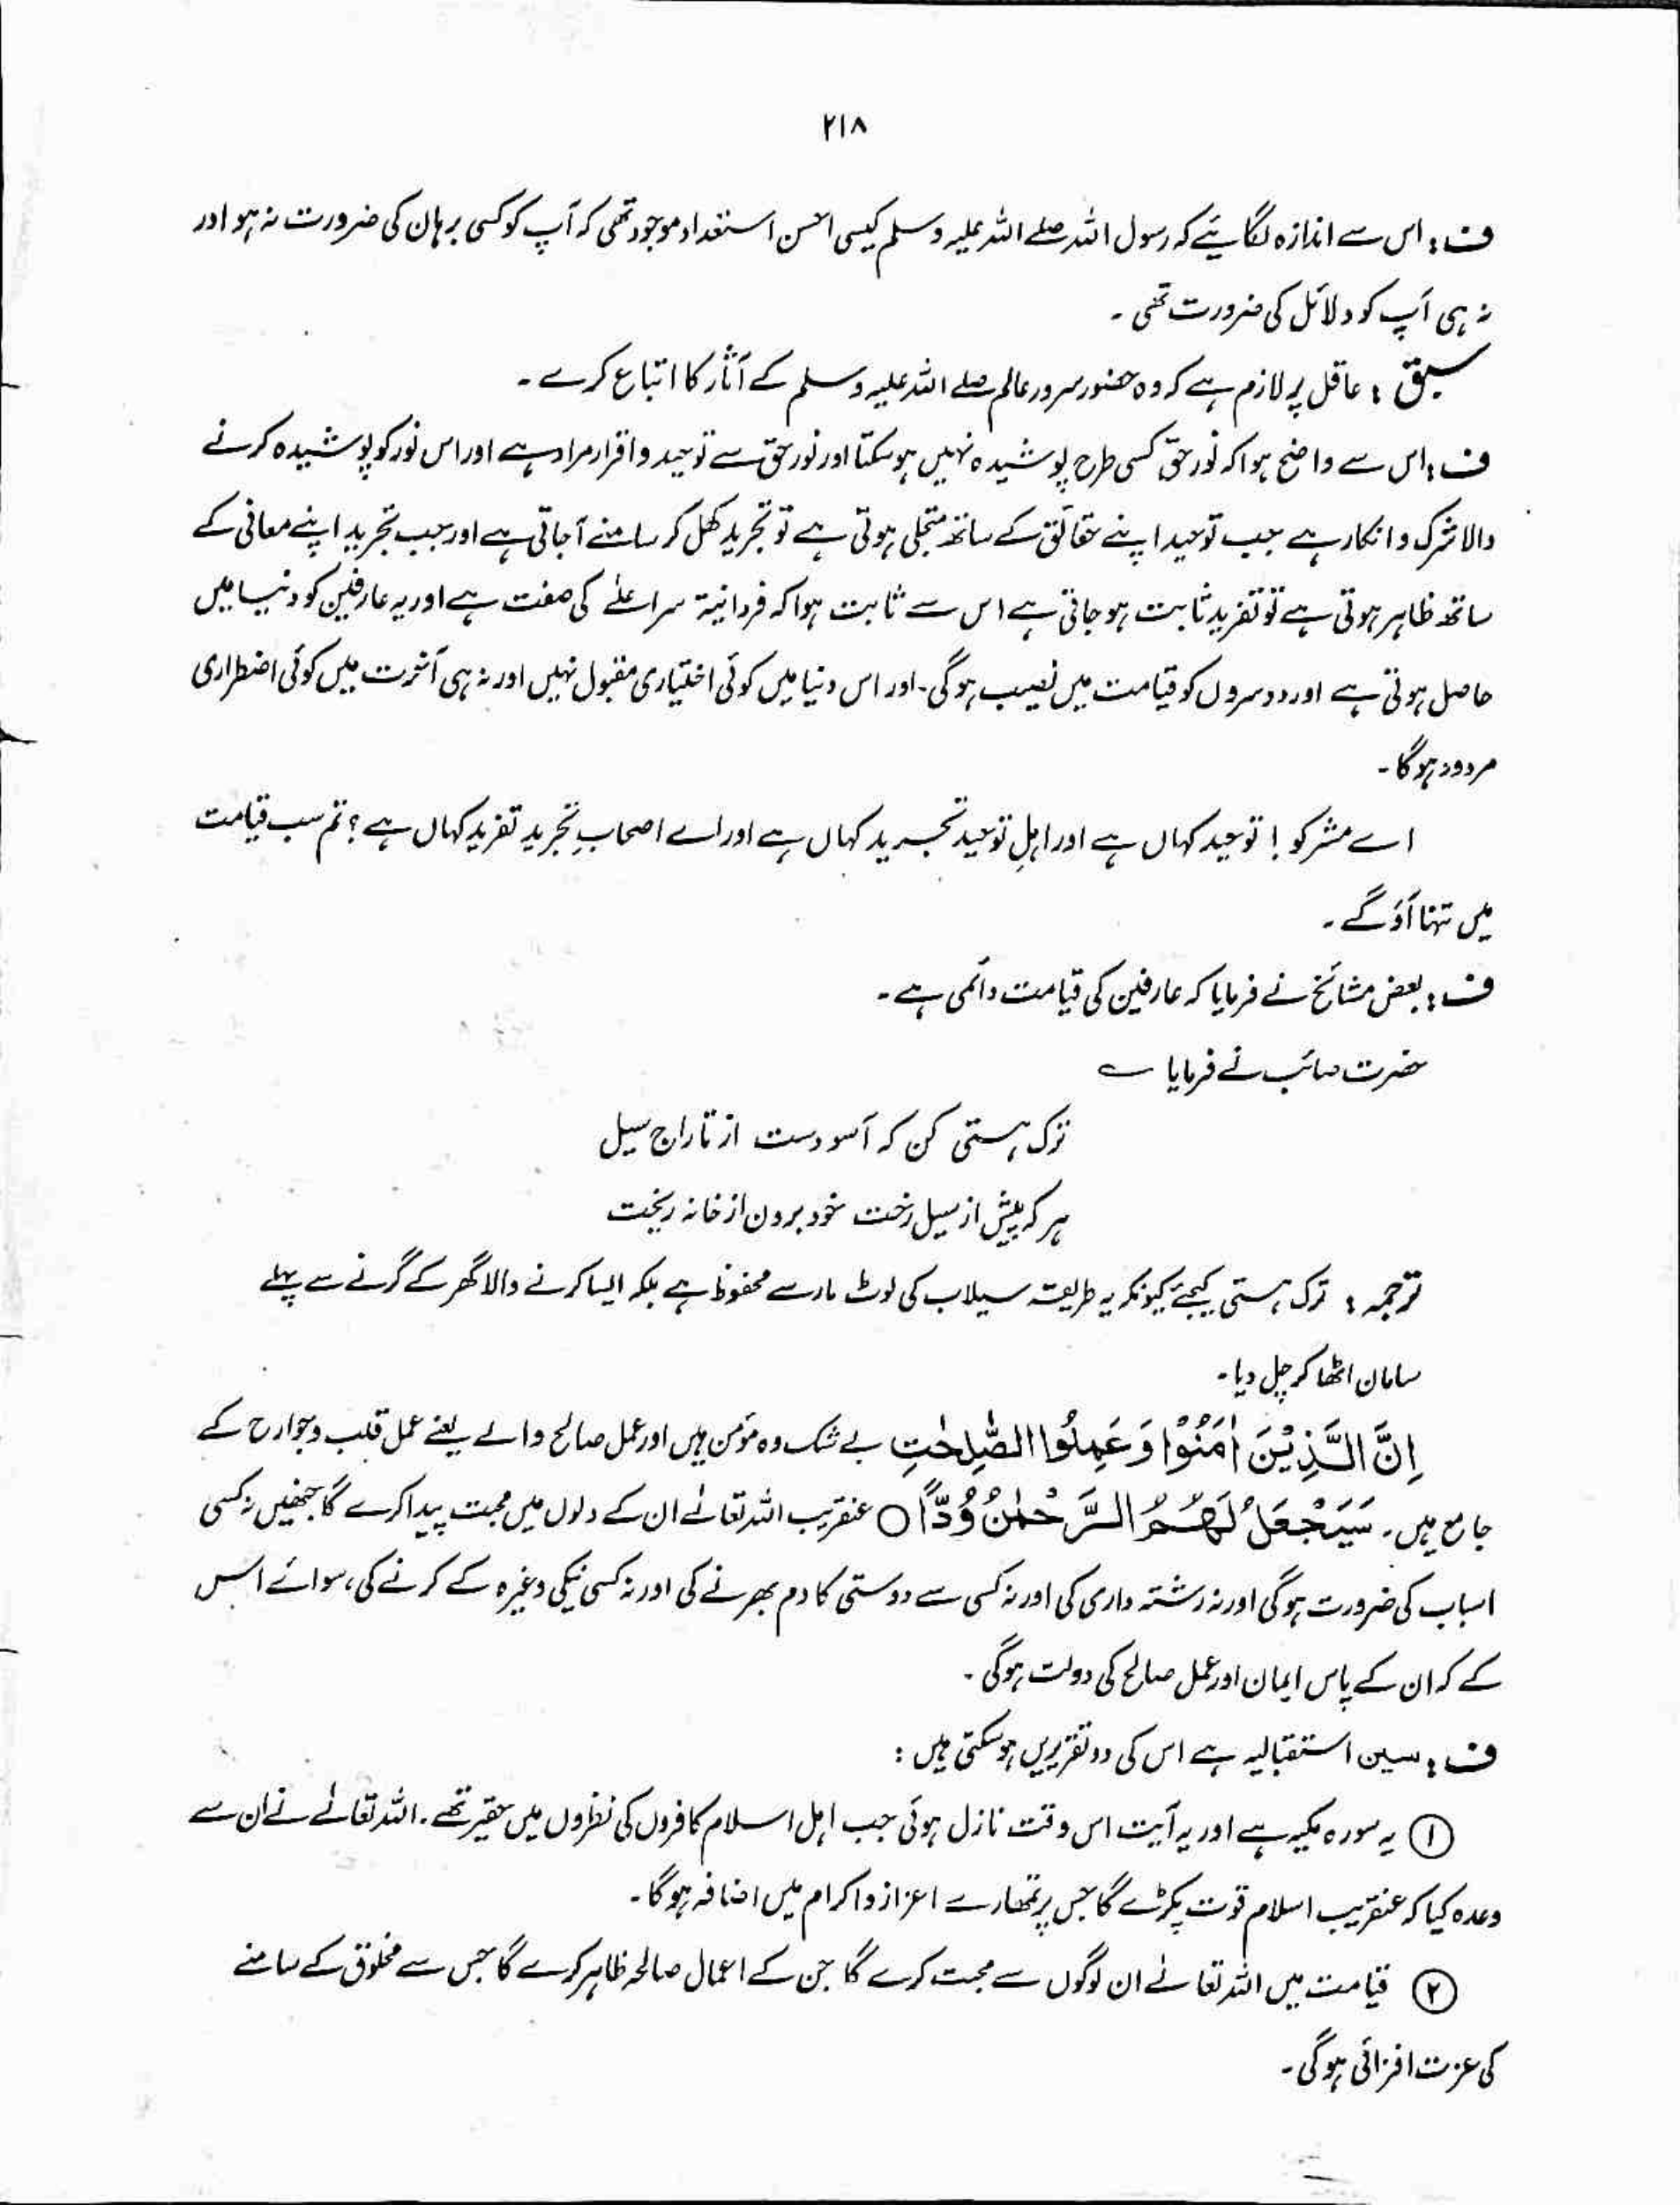 ۲۱۸
ف : اس سے اندازہ لگائیے کہ رسول اللہ صلے اللہ علیہ وسلم کیسی احسن استعداد موجود تھی کہ آپ کو کسی برہان کی ضرورت نہ ہو اور
نہ ہی آپ کو دلائل کی ضرورت تھی ۔
سبق : عاقل پر لازم ہے کہ وہ حضور سرور عالم صلے اللہ علیہ وسلم کے آثار کا اتباع کرے ۔
ف : اس سے واضح ہوا کہ نورِ حق کسی طرح پوشیدہ نہیں ہو سکتا اور نور حق سے توحید و اقرار مراد ہے اور اس نور کو پوشیدہ کرنے
والا شرک و انکار ہے جب توحید اپنے حقائق کے ساتھ متجلی ہوتی ہے تو تجرید کھل کر سامنے آجاتی ہے اور جب تجرید اپنے معانی کے
ساتھ ظاہر ہوتی ہے تو تفرید ثابت ہو جاتی ہے اس سے ثابت ہوا کہ فردانیۃ سراعلٰے کی صفت ہے اور یہ عارفین کو دنیا میں
حاصل ہوتی ہے اور دوسروں کو قیامت میں نصیب ہوگی ۔ اور اس دنیا میں کوئی اختیاری مقبول نہیں اور نہ ہی آخرت میں کوئی اضطراری
مردود ہوگا ۔
اے مشرکو ! توحید کہاں ہے اور اہلِ توحید تجرید کہاں ہے اور اے اصحابِ تجرید تفرید کہاں ہے ؟ تم سب قیامت
میں تنہا آؤ گے ۔
ف : بعض مشائخ نے فرمایا کہ عارفین کی قیامت دائمی ہے ۔
حضرت صائب نے فرمایا ؎
ترک ہستی کن کہ آسودست از تاراج سیل
ہر کہ پیش از سیل رخت خود برون از خانہ ریخت
ترجمہ : ترک ہستی کیجئے کیونکہ یہ طریقہ سیلاب کی لوٹ مار سے محفوظ ہے بلکہ ایسا کرنے والا گھر کے گرنے سے پہلے
سامان اٹھا کر چل دیا ۔
اِنَّ الَّذِیْنَ اٰمَنُوْا وَعَمِلُوا الصّٰلِحٰتِ بے شک وہ مؤمن ہیں اور عمل صالح والے یعنے عمل قلب و جوارح کے
جامع ہیں ۔ سَیَجْعَلُ لَھُمُ الرَّحْمٰنُ وُدًّا ○ عنقریب اللہ تعالٰے ان کے دلوں میں محبت پیدا کرے گا جنھیں نہ کسی
اسباب کی ضرورت ہوگی اور نہ رشتہ داری کی اور نہ کسی سے دوستی کا دم بھرنے کی اور نہ کسی نیکی وغیرہ کے کرنے کی ، سوائے اس
کے کہ ان کے پاس ایمان اور عمل صالح کی دولت ہوگی ۔
ف : سین استقبالیہ ہے اس کی دو تقریریں ہو سکتی ہیں :
① یہ سورہ مکیہ ہے اور یہ آیت اس وقت نازل ہوئی جب اہل اسلام کافروں کی نظروں میں حقیر تھے ۔ اللہ تعالٰے نے ان سے
وعدہ کیا کہ عنقریب اسلام قوت پکڑے گا جس پر تمھارے اعزاز و اکرام میں اضافہ ہوگا ۔
② قیامت میں اللہ تعالٰے ان لوگوں سے محبت کرے گا جن کے اعمال صالحہ ظاہر کرے گا جس سے مخلوق کے سامنے
کی عزت افزائی ہوگی ۔